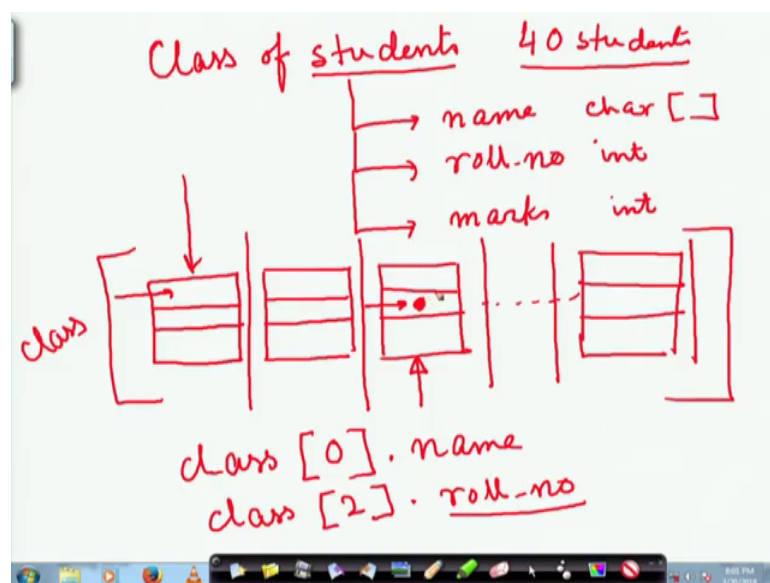 Class of students 40 students
name char [ ]
roll-no int
marks int
class
class [0] . name
class [2] . roll-no
8:03 PM